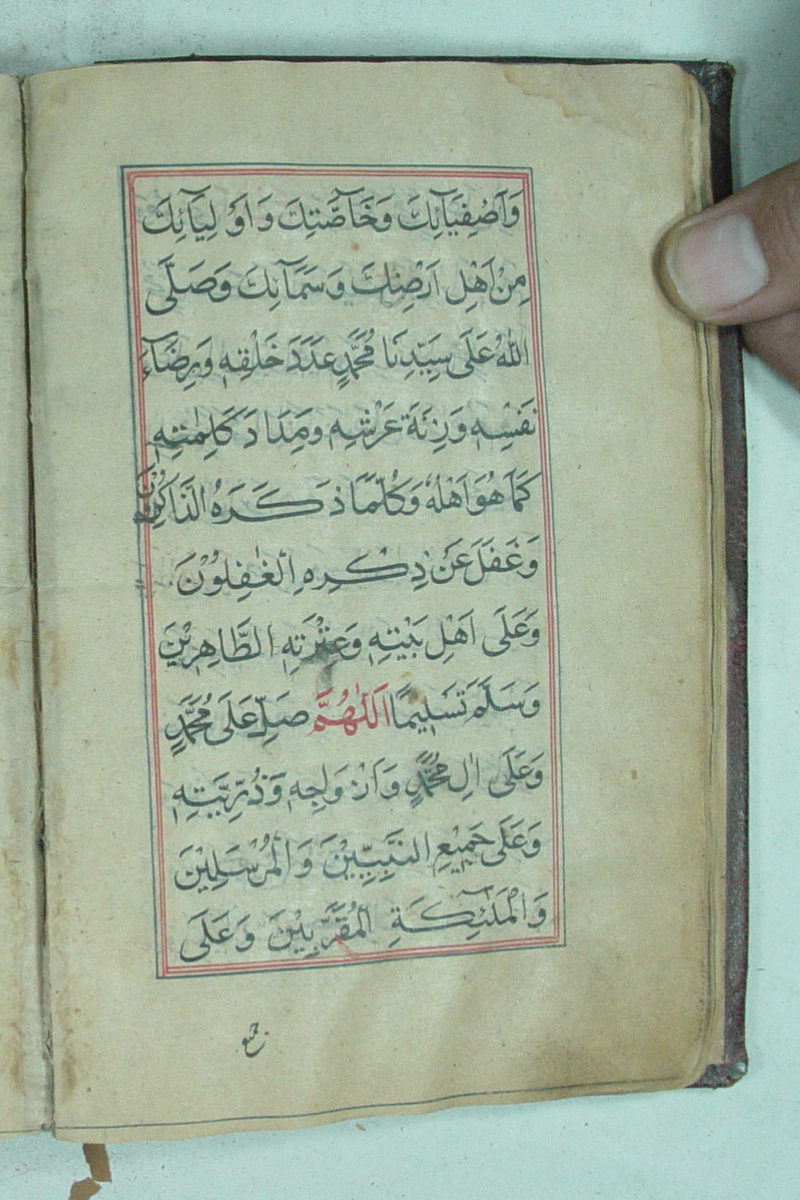 وَاَصْفِيَآئِكَ وَخَآصَّتِكَ وَاَوْلِيَآئِكَ
مِنْ اَهْلِ اَرْضِكَ وَسَمَآئِكَ وَصَلَّى
اللهُ عَلَى سَيِّدِنَا مُحَمَّدٍ عَدَدَ خَلْقِهٖ وَرِضَآءَ
نَفْسِهٖ وَزِنَةَ عَرْشِهٖ وَمِدَادَ كَلِمٰتِهٖ
كَمَا هُوَ اَهْلُهٗ وَكُلَّمَا ذَكَرَهُ الذَّاكِرُوْنَ
وَغَفَلَ عَنْ ذِكْرِهِ الْغٰفِلُوْنَ
وَعَلَى اَهْلِ بَيْتِهٖ وَعِتْرَتِهِ الطَّاهِرِيْنَ
وَسَلَّمَ تَسْلِيمًا اَللّٰهُمَّ صَلِّ عَلَى مُحَمَّدٍ
وَعَلَى اٰلِ مُحَمَّدٍ وَاَزْوَاجِهٖ وَذُرِّيَّتِهٖ
وَعَلَى جَمِيْعِ النَّبِيِّيْنَ وَالْمُرْسَلِيْنَ
وَالْمَلٰٓئِكَةِ الْمُقَرَّبِيْنَ وَعَلَى
جميع